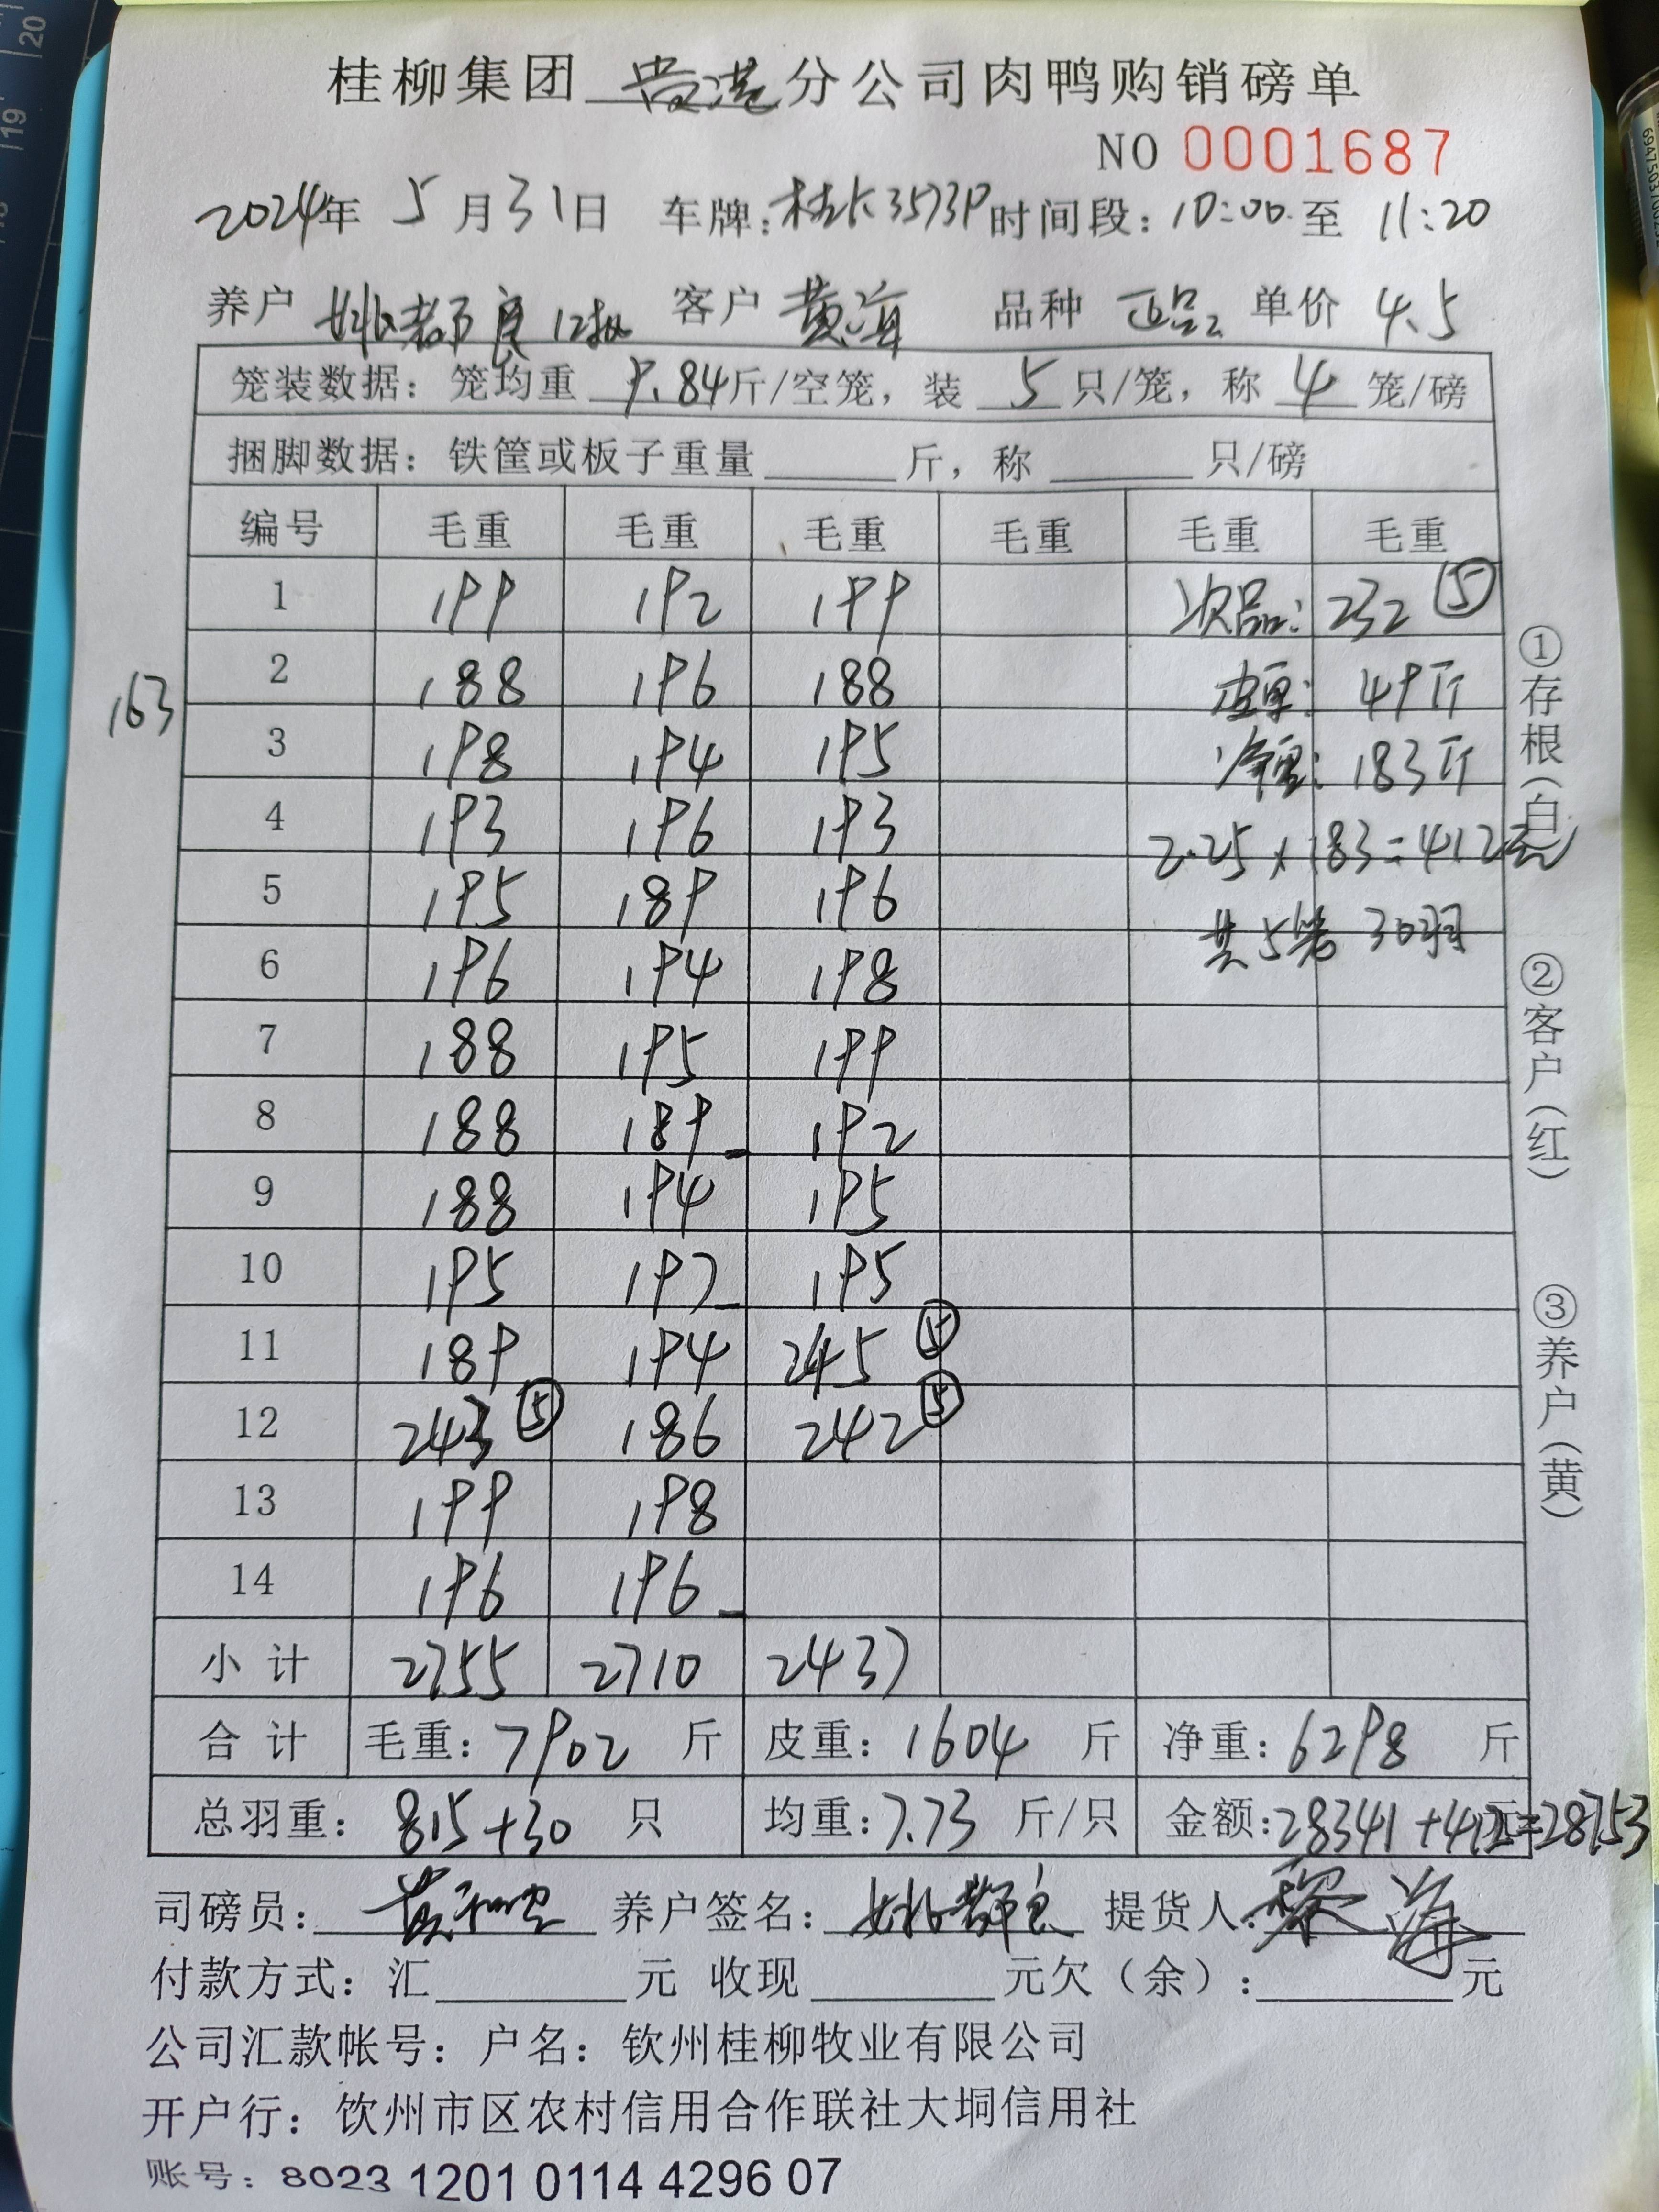 桂柳集团 贵港 分公司肉鸭购销磅单
NO 0001687
2024年 5 月 31 日 车牌: 桂K3573P 时间段: 10:00 至 11:20
养户 姚都良12批 客户 黄海 品种 正品 单价 4.5
笼装数据: 笼均重 9.84 斤/空笼, 装 5 只/笼, 称 4 笼/磅
捆脚数据: 铁筐或板子重量 斤, 称 只/磅
编号 毛重 毛重 毛重 毛重 毛重 毛重
1 199 192 199 次品: 232 ⑤
2 188 196 188 皮重: 49斤
163
3 198 194 195 净重: 183斤
4 193 196 193 2.25×183=412元
5 195 189 196 共5笼 30羽
6 196 194 198
7 188 195 199
8 188 189 192
9 188 194 195
10 195 197 195
11 189 194 245 ⑤
12 243 ⑤ 186 242 ⑤
13 199 198
14 196 196
小 计 2755 2710 2437
合 计 毛重: 7902 斤 皮重: 1604 斤 净重: 6298 斤
总羽重: 815+30 只 均重: 7.73 斤/只 金额: 28341+412=28753 元
司磅员: 养户签名: 姚都良 提货人: 海
付款方式: 汇 元 收现 元欠(余): 元
公司汇款帐号: 户名: 钦州桂柳牧业有限公司
开户行: 饮州市区农村信用合作联社大垌信用社
账号: 8023 1201 0114 4296 07
①存根(白)
②客户(红)
③养户(黄)